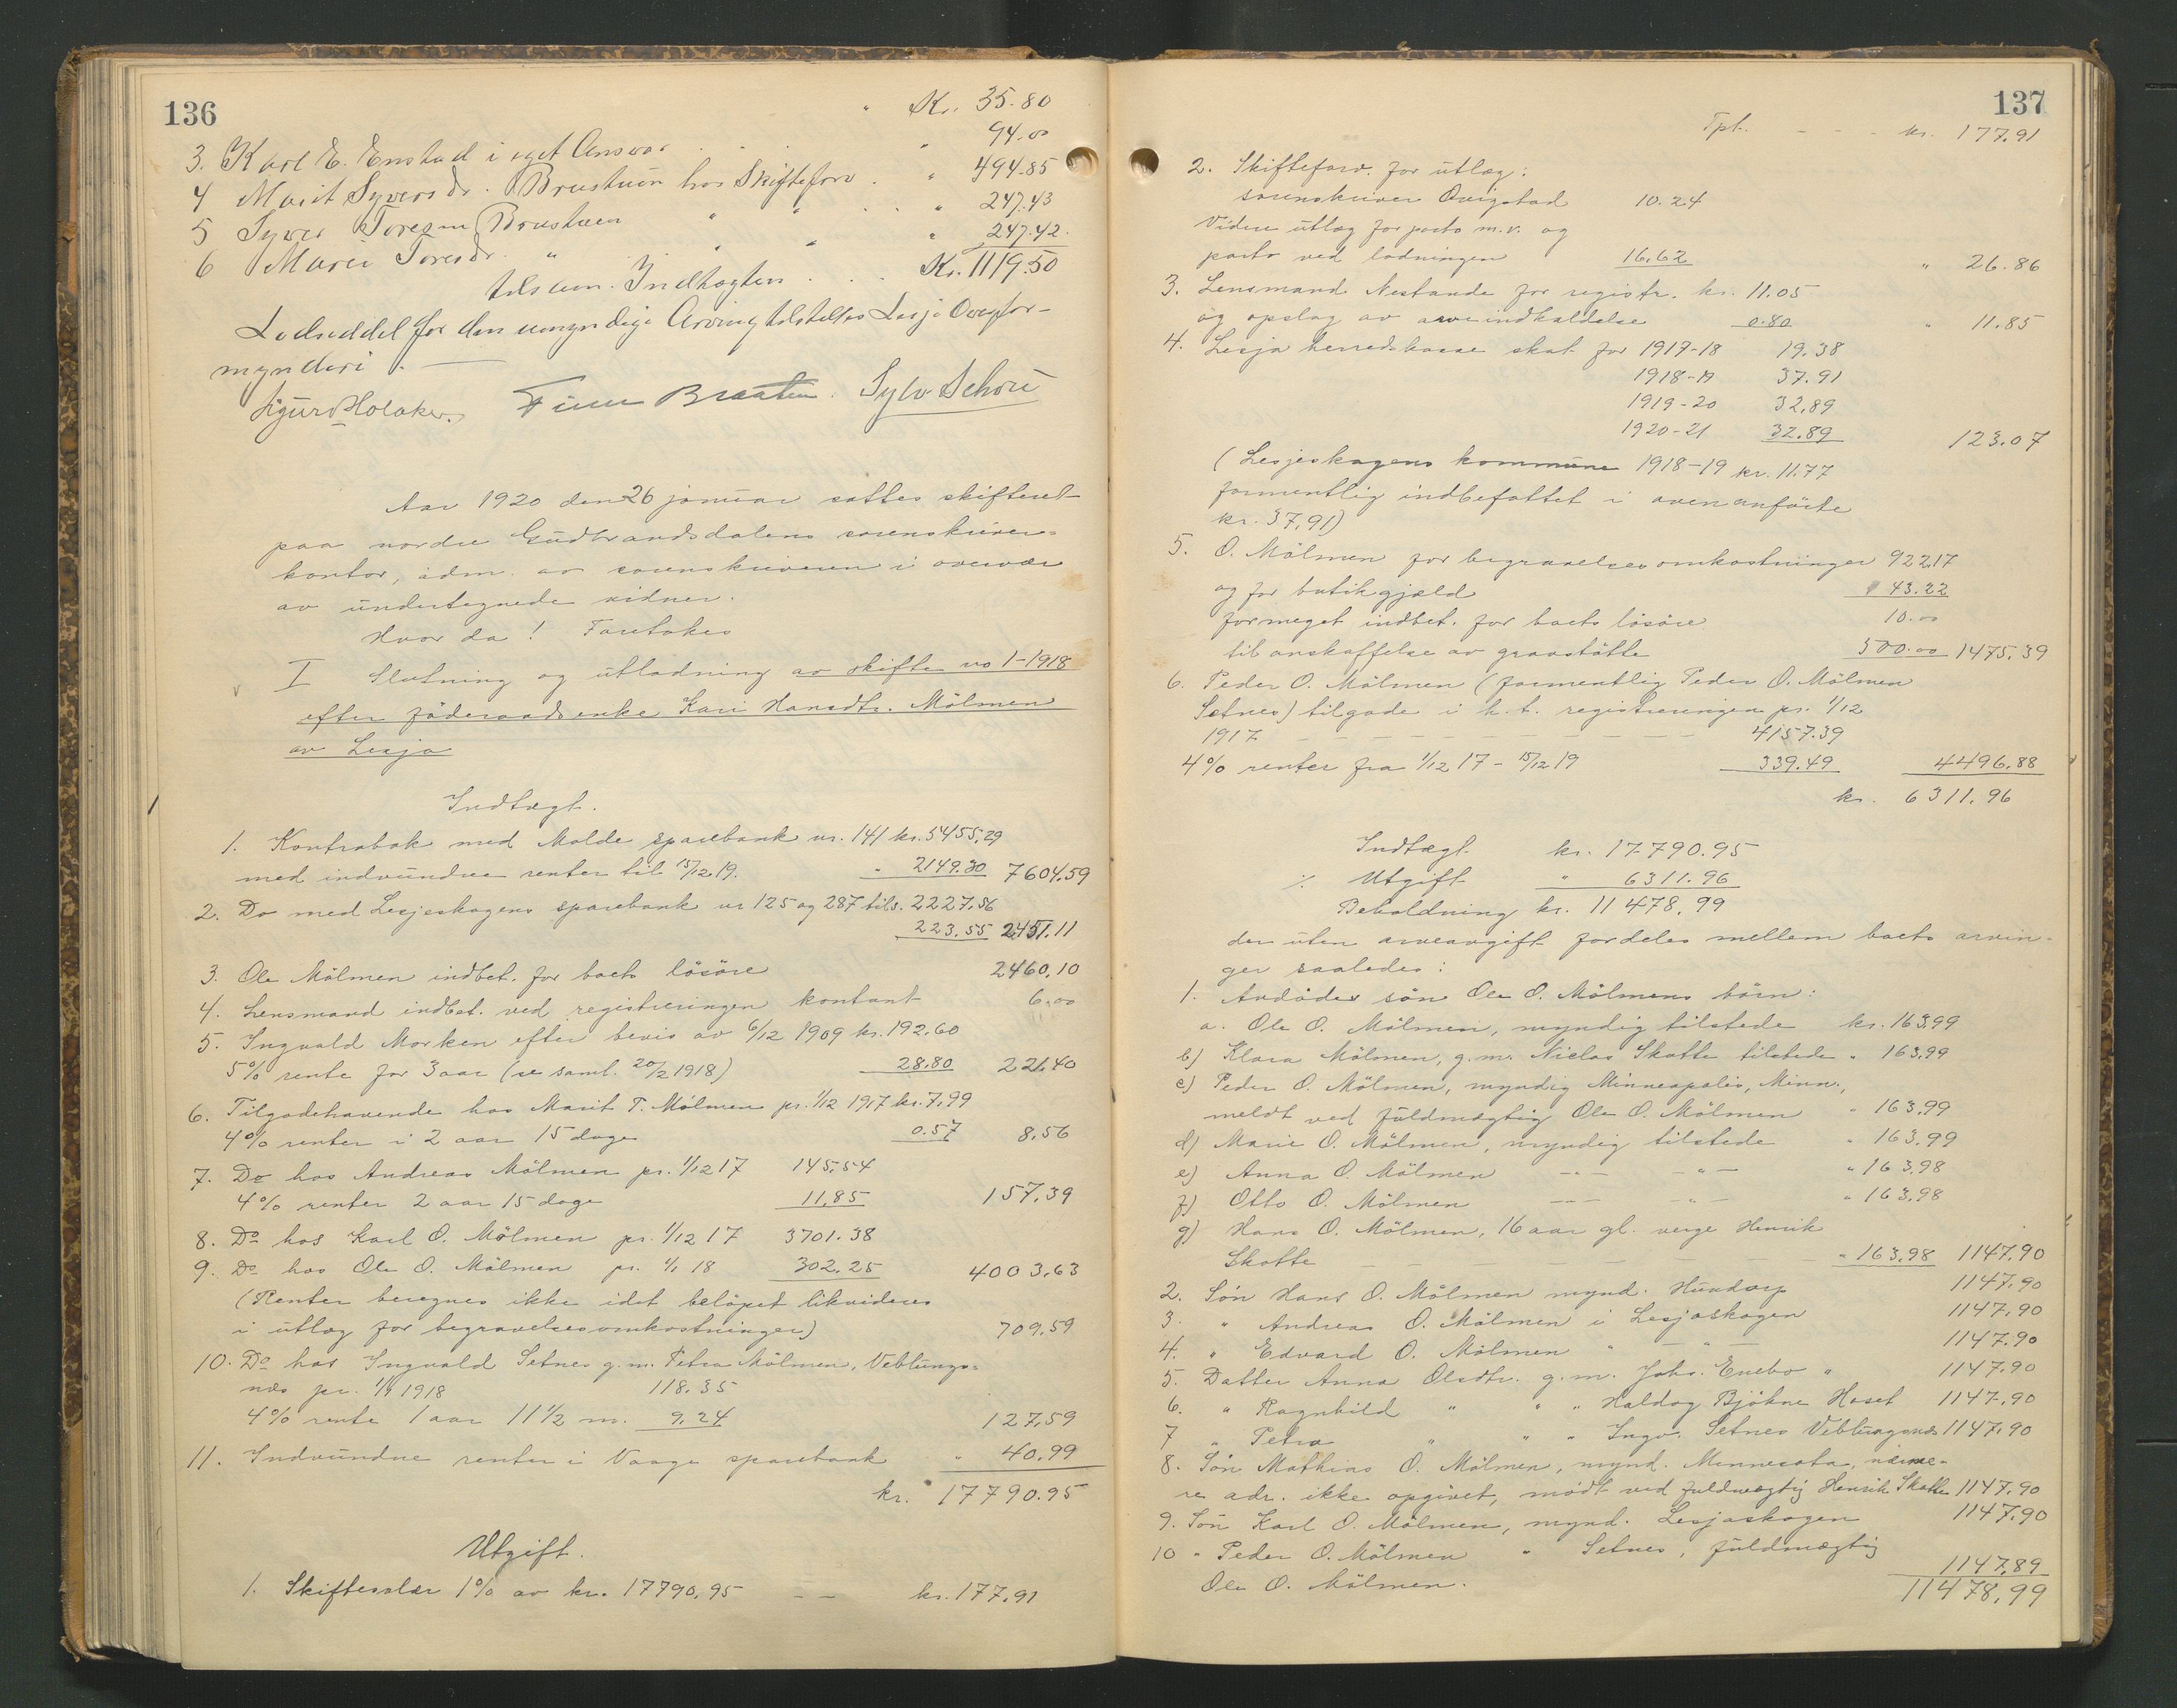 136
" Kr. 35.80
3. Karl E. Enstad i eget Ansvar . . " 94.00
4 Marit Syversdr. Brustuen hos Skifteforv . " 494.85
5 Syver Toresen Brustuen " " . . " 247.43
6 Mari Toresdr. " " " " 247.42.
tilsam. Indtægten . . . Kr. 1119.50
Lodseddel for den umyndige Arving tilstilles Lesje Overfor-
mynderi. —
Sigurd Holaker. Finn Braaten. Sylv Schou
Aar 1920 den 26 januar sattes skifteret
paa nordre Gudbrandsdalens sorenskriver=
kontor, adm. av sorenskriveren i overvær
av undertegnede vidner.
Hvor da! Foretokes
I Slutning og utlodning av skifte no 1-1918
efter föderaadsenke Kari Hansdtr. Mölmen
av Lesja
Indtægt.
1. Kontrabok med Molde sparebank nr. 141 kr. 5455,29
med indvundne renter til 15/12 19. " 2149.30 7604,59
2. Do med Lesjeskogens sparebank nr 125 og 287 tils. 2227,56
223,55 2451.11
3. Ole Mölmen indbet. for boets lösöre 2460,10
4. Lensmand indbet. ved registreringen kontant 6.00
5. Ingvald Morken efter bevis av 6/12 1909 kr. 192,60
5% rente for 3 aar (se saml. 20/2 1918) 28,80 221.40
6. Tilgodehavende hos Marit T. Mölmen pr. 1/12 1917 kr. 7,99
4% renter i 2 aar 15 dage 0.57 8,56
7. Do hos Andreas Mölmen pr. 1/12 17 145,54
4% renter 2 aar 15 dage 11,85 157,39
8. Do hos Karl O. Mölmen pr. 1/12 17 3701.38
9. Do hos Ole O. Mölmen pr. 1/1 18 302,25 4003,63
(Renter beregnes ikke idet belöpet likvideres
i utlæg for begravelsesomkostninger) 709,59
10. Do hos Ingvald Setnes g.m. Petra Mölmen, Veblungs=
nes pr. 1/1 1918 118.35
4% rente 1 aar 11 1/2 m. 9,24 127,59
11. Indvundne renter i Vaage sparebank " 40.99
kr. 17790.95
Utgift.
1. Skiftesalær 1% av kr. 17790,95 — — kr. 177,91
137
Tpt. - - - kr. 177.91
2. Skifteforv. for utlæg:
sorenskriver Qvigstad 10.24
Videre utlæg for porto m.v. og
porto ved lodningen 16,62 " 26.86
3. Lensmand Nestande for registr. kr. 11.05
og opslag av arveindkaldelse 0.80 " 11.85
4. Lesja herredskasse skat for 1917-18 19.38
1918-19 37.91
1919-20 32,89
1920-21 32.89 123.07
(Lesjeskogens kommune 1918-19 kr. 11.77
formentlig indbefattet i ovenanförte
kr. 37,91)
5. O. Mölmen for begravelsesomkostninger 922,17
og for butikgjæld 43.22
formeget indbet. for boets lösöre 10.00
til anskaffelse av gravstötte 500.00 1475,39
6. Peder O. Mölmen (formentlig Peder O. Mölmen
Setnes) tilgode i h.t. registreringen pr. 1/12
1917 — — — — — — — — 4157.39
4% renter fra 1/12 17 - 15/12 19 339.49 4496,88
kr. 6311,96
Indtægt kr. 17790.95
./. Utgift " 6311.96
Beholdning kr. 11478,99
der uten arveavgift fordeles mellem boets arvin-
ger saaledes:
1. Avdödes sön Ole O. Mölmens börn:
a. Ole O. Mölmen, myndig tilstede kr. 163,99
b) Klara Mölmen, g.m. Niclas Skotte tilstede " 163,99
c) Peder O. Mölmen, myndig Minneapolis, Minn.,
meldt ved fuldmægtig Ole O. Mölmen " 163,99
d) Marie O. Mölmen, myndig tilstede " 163,99
e) Anna O. Mölmen —"— —"— " 163,98
f) Otto O. Mölmen —"— —"— " 163,98
g) Hans O. Mölmen, 16 aar gl. verge Henrik
Skotte — — — — " 163,98 1147,90
2. Sön Hans O. Mölmen mynd. Hundorp 1147,90
3. " Andreas O. Mölmen i Lesjaskogen 1147,90
4. " Edvard O. Mölmen " — " — 1147.90
5. Datter Anna Olsdtr. g.m. Johs. Enebo " 1147,90
6. " Ragnhild " " " Haldog Bjökne Hoset 1147,90
7 " Petra " " " Ingv. Setnes Veblungsnes 1147,90
8. Sön Mathias O. Mölmen, mynd. Minnesota, nærme-
re adr. ikke opgivet, mödt ved fuldmægtig Henrik Skotte 1147,90
9. Sön Karl O. Mölmen, mynd. Lesjaskogen 1147,90
10 " Peder O. Mölmen " Setnes, fuldmægtig
Ole O. Mölmen. 1147,89
11478,99